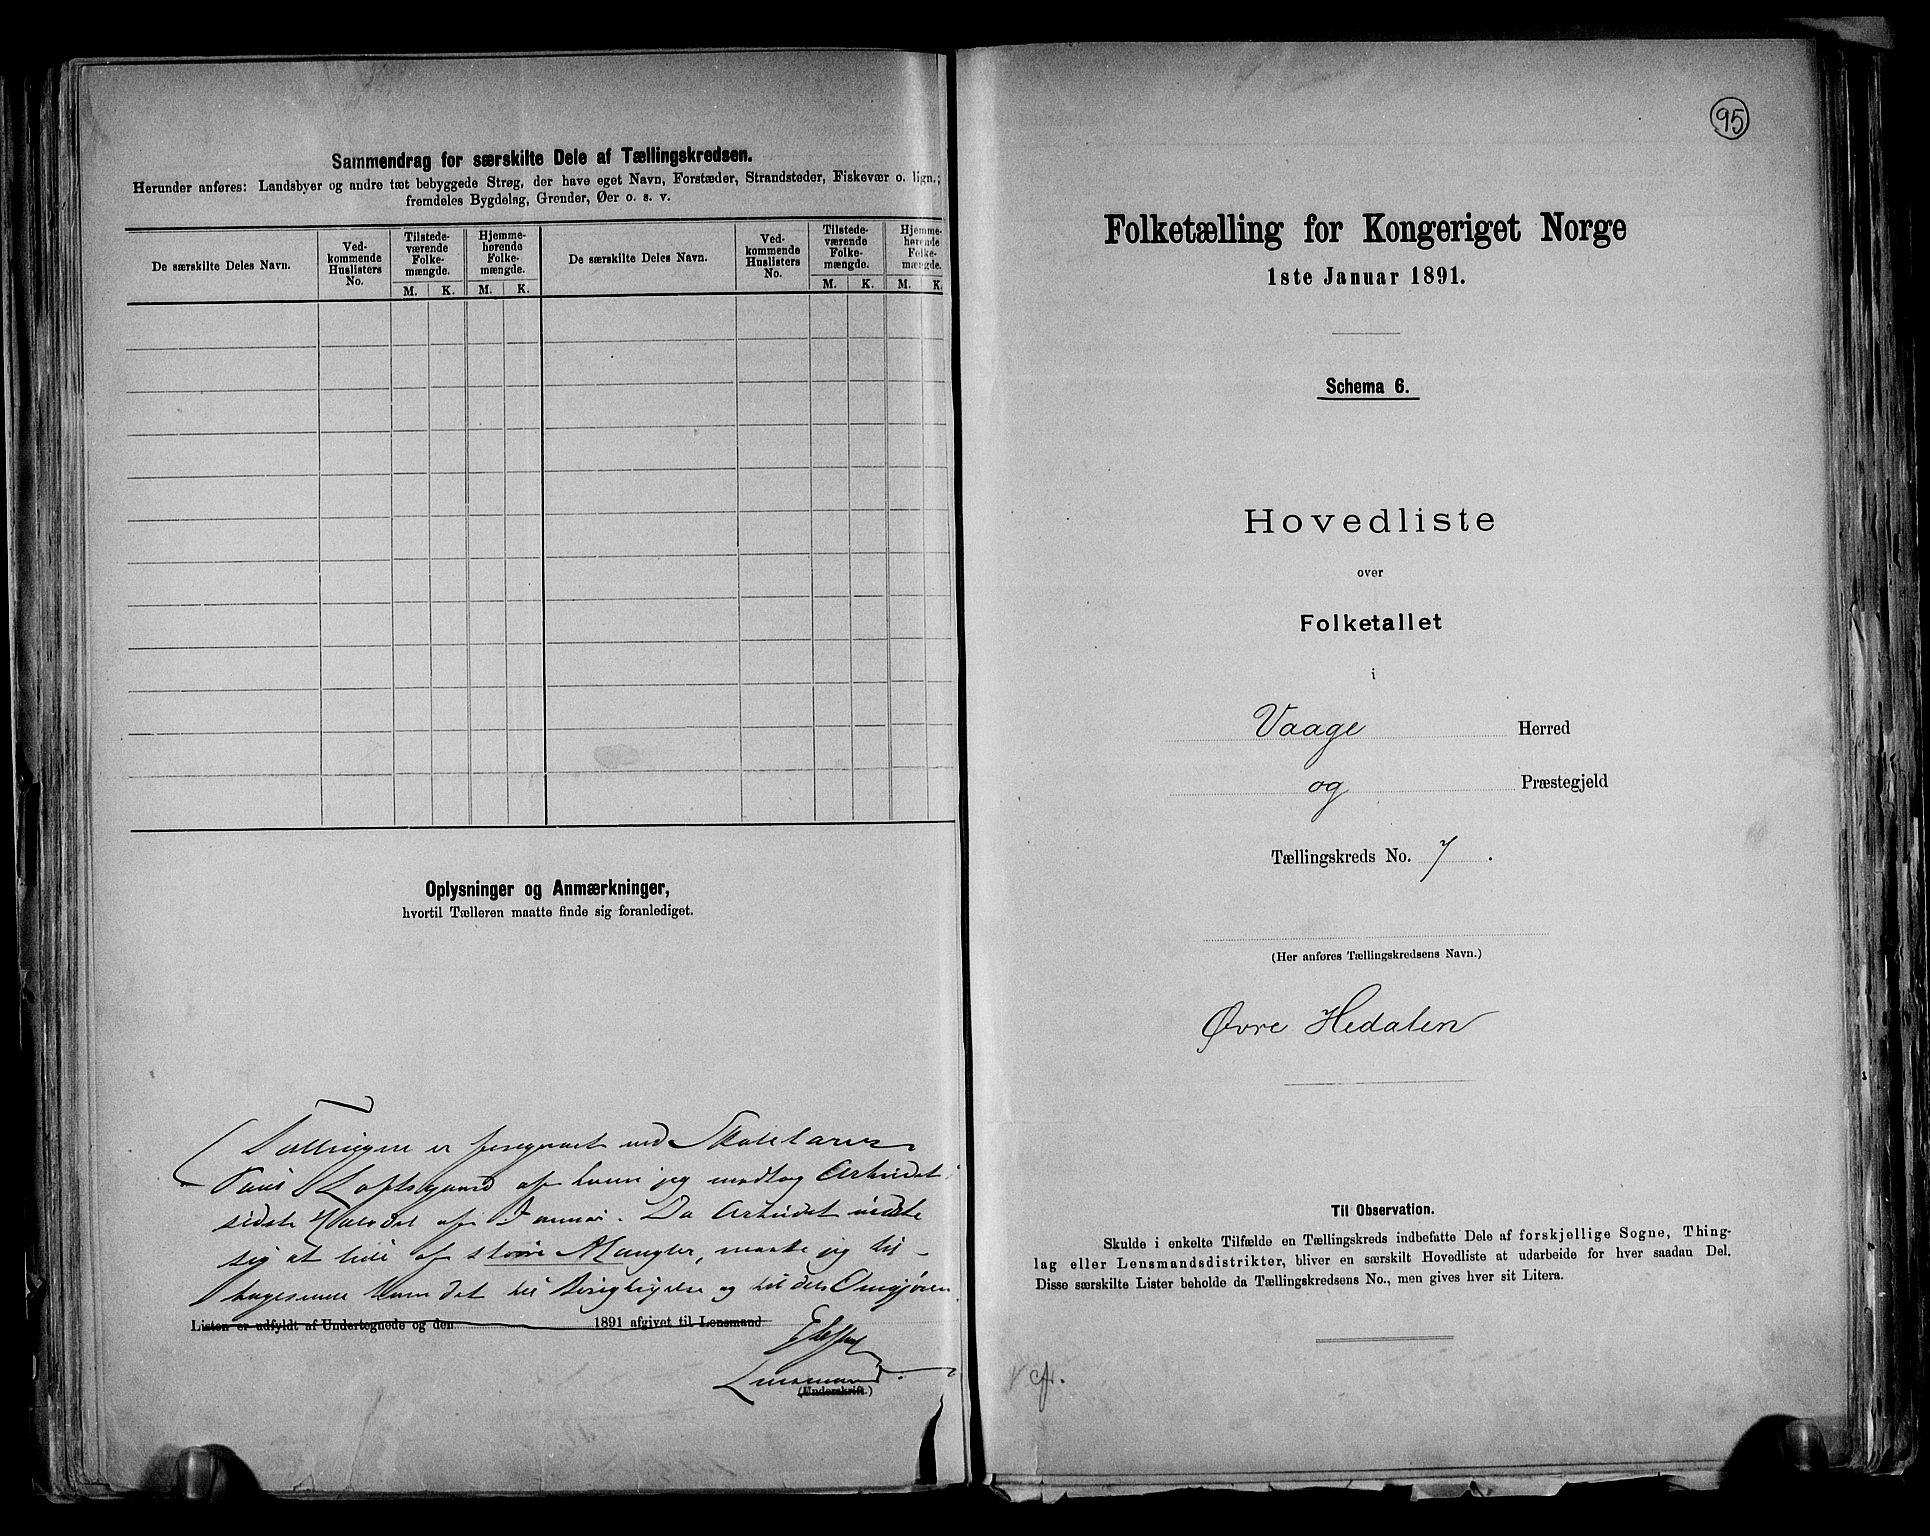 Sammendrag for særskilte Dele af Tællingskredsen.
Herunder anføres: Landsbyer og andre tæt bebyggede Strøg, der have eget Navn, Forstæder, Strandsteder, Fiskevær o. lign.;
fremdeles Bygdelag, Grender, Øer o. s. v.
De særskilte Deles Navn.
Ved-
kommende
Huslisters
No.
Tilstede-
værende
Folke-
mængde.
Hjemme-
hørende
Folke-
mængde.
De særskilte Deles Navn.
Ved-
kommende
Huslisters
No.
Tilstede-
værende
Folke-
mængde.
Hjemme-
hørende
Folke-
mængde.
M. K. M. K. M. K. M. K.
Oplysninger og Anmærkninger,
hvortil Tælleren maatte finde sig foranlediget.
Tællingen er foregaaet ved Skolelærer
Loftsgaard af hvem jeg modtog Arbeidet i
sidste Halvdel af Januar. Da Arbeidet viste
sig at lide af store Mangler, maatte jeg til-
bagesende ham det til Berigtigelse og til dels Omgjøren
Listen er udfyldt af Undertegnede og den 1891 afgivet til Lensmand
Lensmand.
(Underskrift.)
95
Folketælling for Kongeriget Norge
1ste Januar 1891.
Schema 6.
Hovedliste
over
Folketallet
i
Vaage Herred
og Præstegjeld
Tællingskreds No. 7.
(Her anføres Tællingskredsens Navn.)
Øvre Hedalen
Til Observation.
Skulde i enkelte Tilfælde en Tællingskreds indbefatte Dele af forskjellige Sogne, Thing-
lag eller Lensmandsdistrikter, bliver en særskilt Hovedliste at udarbeide for hver saadan Del.
Disse særskilte Lister beholde da Tællingskredsens No., men gives hver sit Litera.